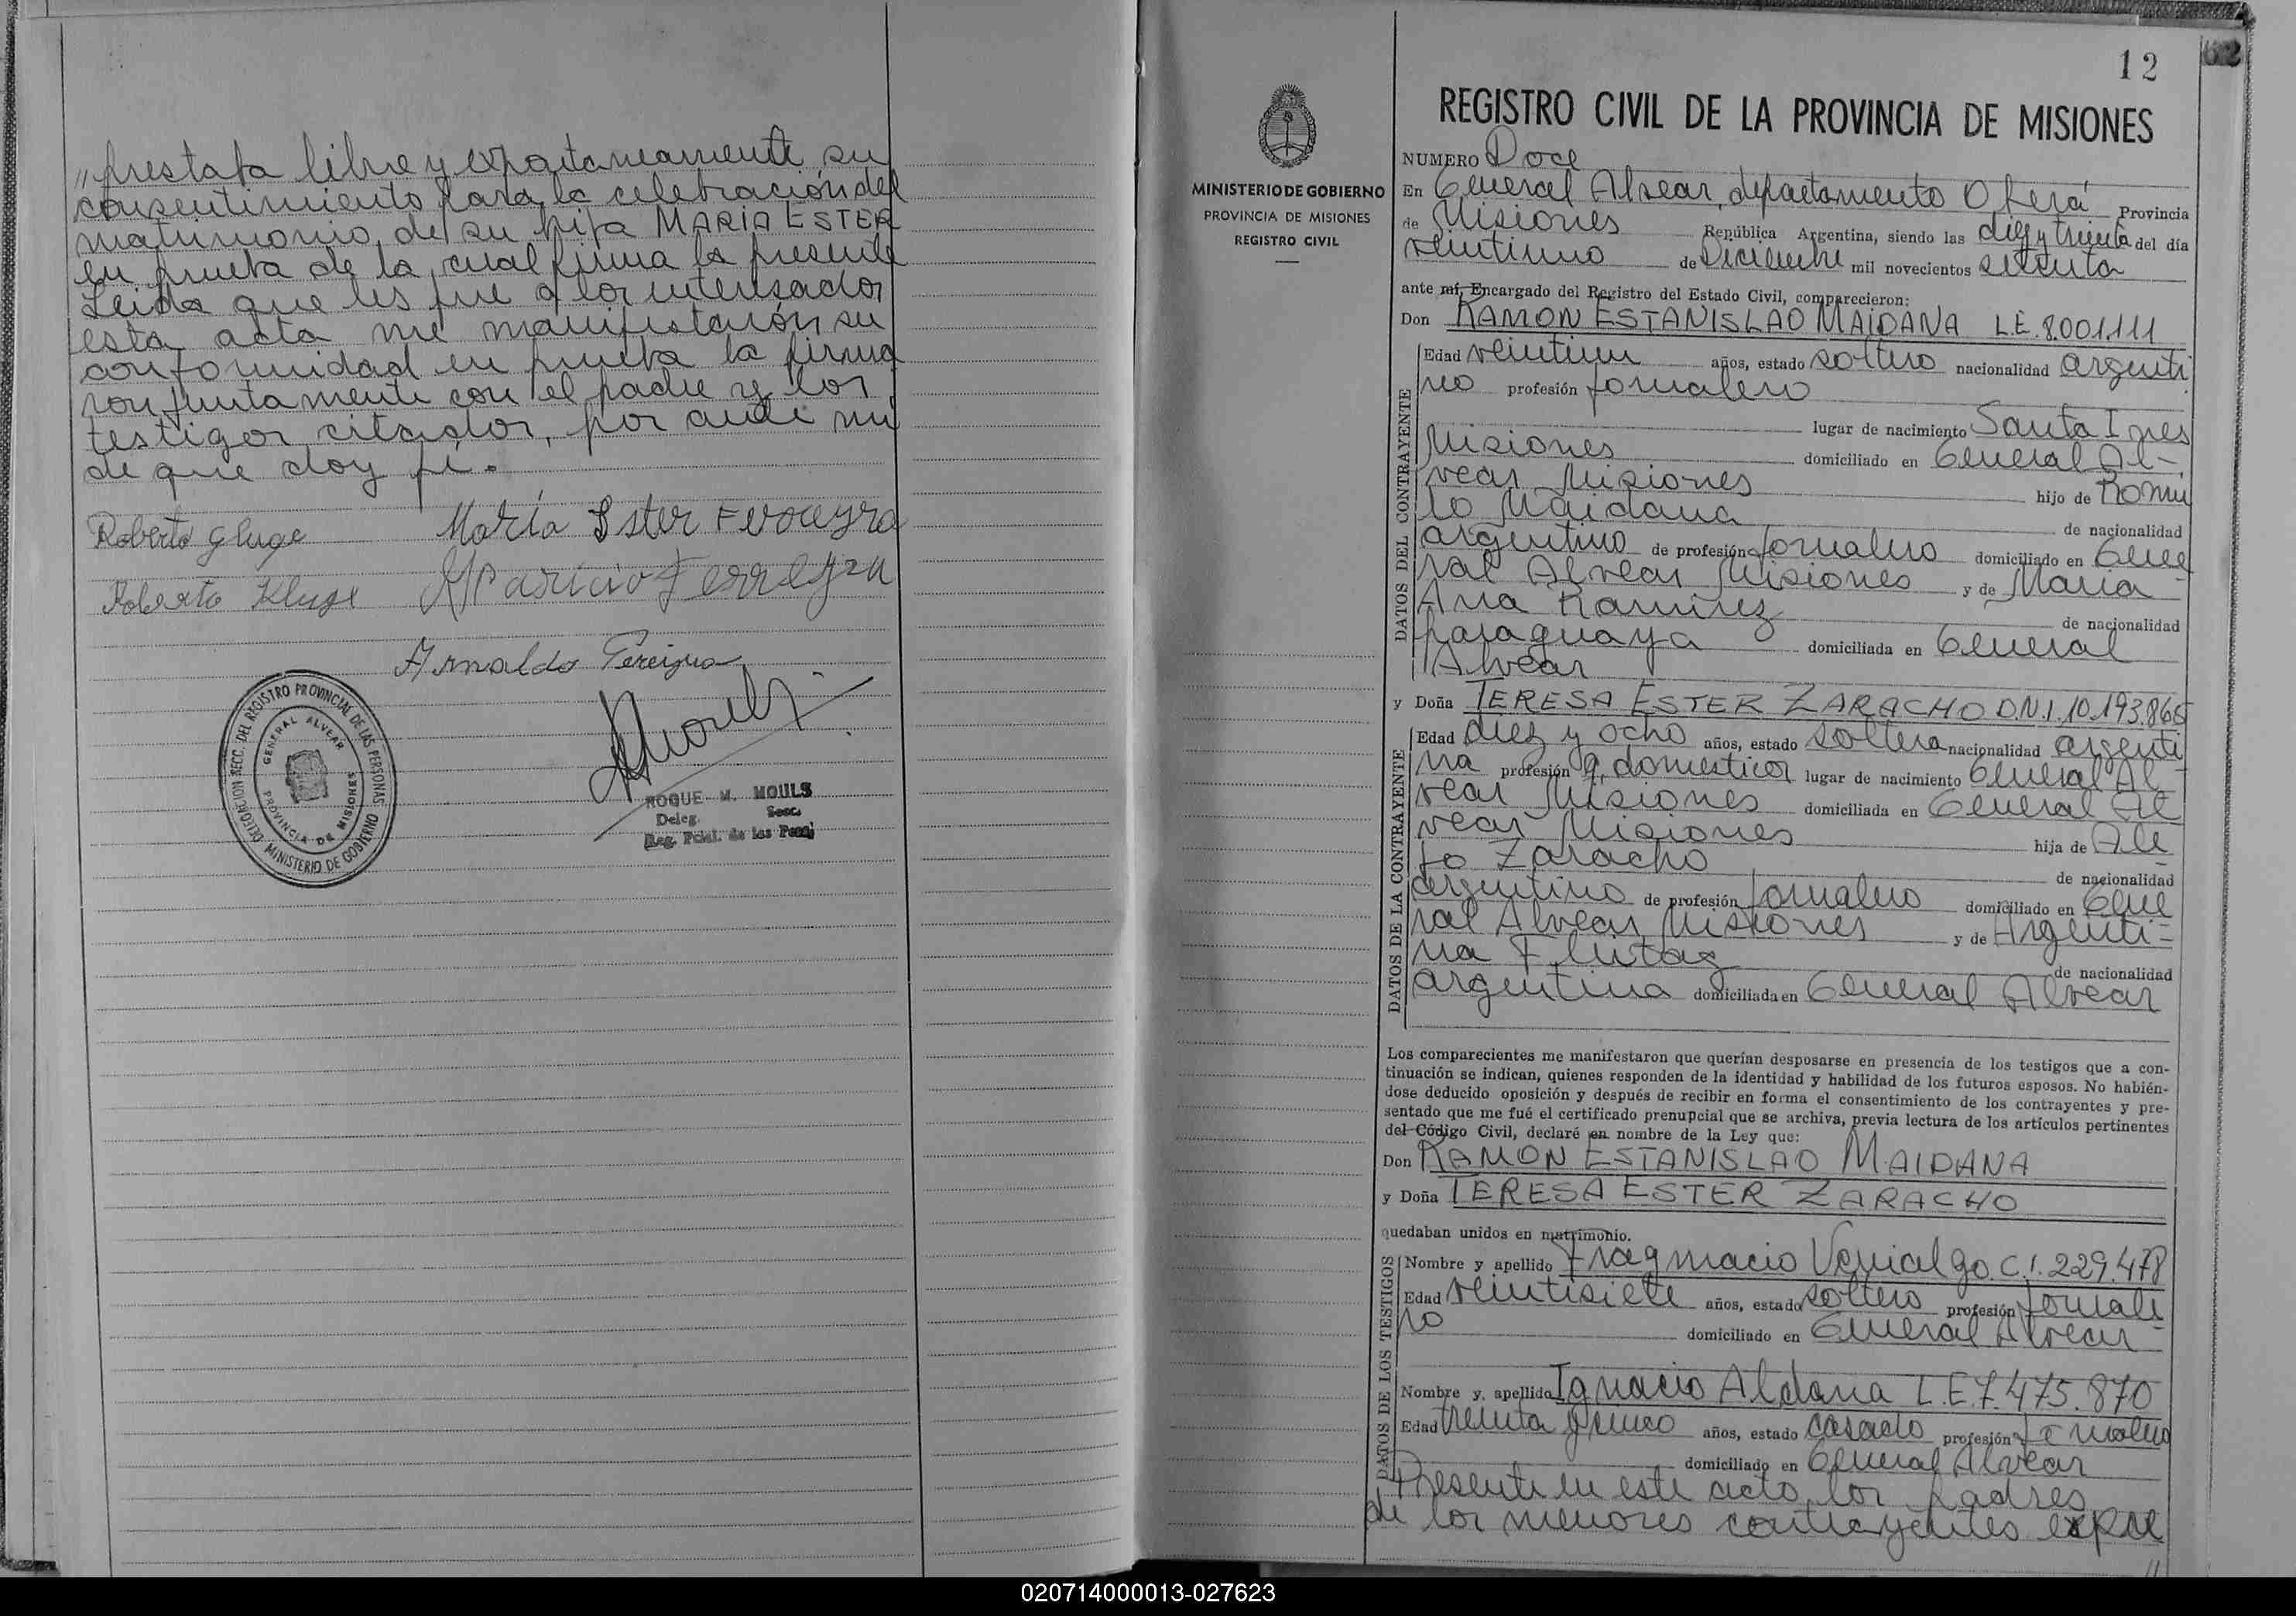 "prestata libre y expontaneamente su
consentimiento para la celebración del
matrimonio de su hija MARIA ESTER
en prueba de la cual firma la presente
Leida que les fue a los interesados
esta acta me manifestarón su
conformidad en prueba la firma
conjuntamente con el padre y los
testigos citados, por ante mi
de que doy fé.
Roberto Gluge María Ester Ferreyra
Roberto Kluge Aparicio Ferreyra
Arnaldo Pereigua
DELEGACION SECC. DEL REGISTRO PROVINCIAL DE LAS PERSONAS
MINISTERIO DE GOBIERNO
GENERAL ALVEAR
PROVINCIA DE MISIONES
ROQUE M. MOULS
Deleg. Secc.
Reg. Pcial. de las Pers.
12
MINISTERIO DE GOBIERNO
PROVINCIA DE MISIONES
REGISTRO CIVIL
REGISTRO CIVIL DE LA PROVINCIA DE MISIONES
NUMERO Doce
En General Alvear, departamento Oberá Provincia
de Misiones República Argentina, siendo las diez y treinta del día
veintiuno de Diciembre mil novecientos setenta
ante mí, Encargado del Registro del Estado Civil, comparecieron:
Don RAMON ESTANISLAO MAIDANA L.E. 8.001.111
DATOS DEL CONTRAYENTE
Edad veintiun años, estado soltero nacionalidad argenti
no profesión jornalero
lugar de nacimiento Santa Ines
Misiones domiciliado en General Al-
vear Misiones hijo de Romu
lo Maidana de nacionalidad
argentino de profesión jornalero domiciliado en Gene
ral Alvear Misiones y de Maria
Ana Ramirez de nacionalidad
paraguaya domiciliada en General
Alvear
y Doña TERESA ESTER ZARACHO D.N.I. 10.193.865
DATOS DE LA CONTRAYENTE
Edad diez y ocho años, estado soltera nacionalidad argenti
na profesión q. domesticos lugar de nacimiento General Al-
vear Misiones domiciliada en General Al
vear Misiones hija de Ale
jo Zaracho de nacionalidad
argentino de profesión jornalero domiciliado en Gene
ral Alvear Misiones y de Argenti-
na Fleitas de nacionalidad
argentina domiciliada en General Alvear
Los comparecientes me manifestaron que querían desposarse en presencia de los testigos que a con-
tinuación se indican, quienes responden de la identidad y habilidad de los futuros esposos. No habién-
dose deducido oposición y después de recibir en forma el consentimiento de los contrayentes y pre-
sentado que me fué el certificado prenupcial que se archiva, previa lectura de los artículos pertinentes
del Código Civil, declaré en nombre de la Ley que:
Don RAMON ESTANISLAO MAIDANA
y Doña TERESA ESTER ZARACHO
quedaban unidos en matrimonio.
DATOS DE LOS TESTIGOS
Nombre y apellido Fragnacio Venialgo. C.I. 229.478
Edad veintisiete años, estado soltero profesión jornale
ro domiciliado en General Alvear
Nombre y apellido Ignacio Aldana L.E. 7.475.870
Edad treinta y cinco años, estado casado profesión jornalero
domiciliado en General Alvear
Presente en este acto los padres
de los menores contrayentes expre
"
020714000013-027623